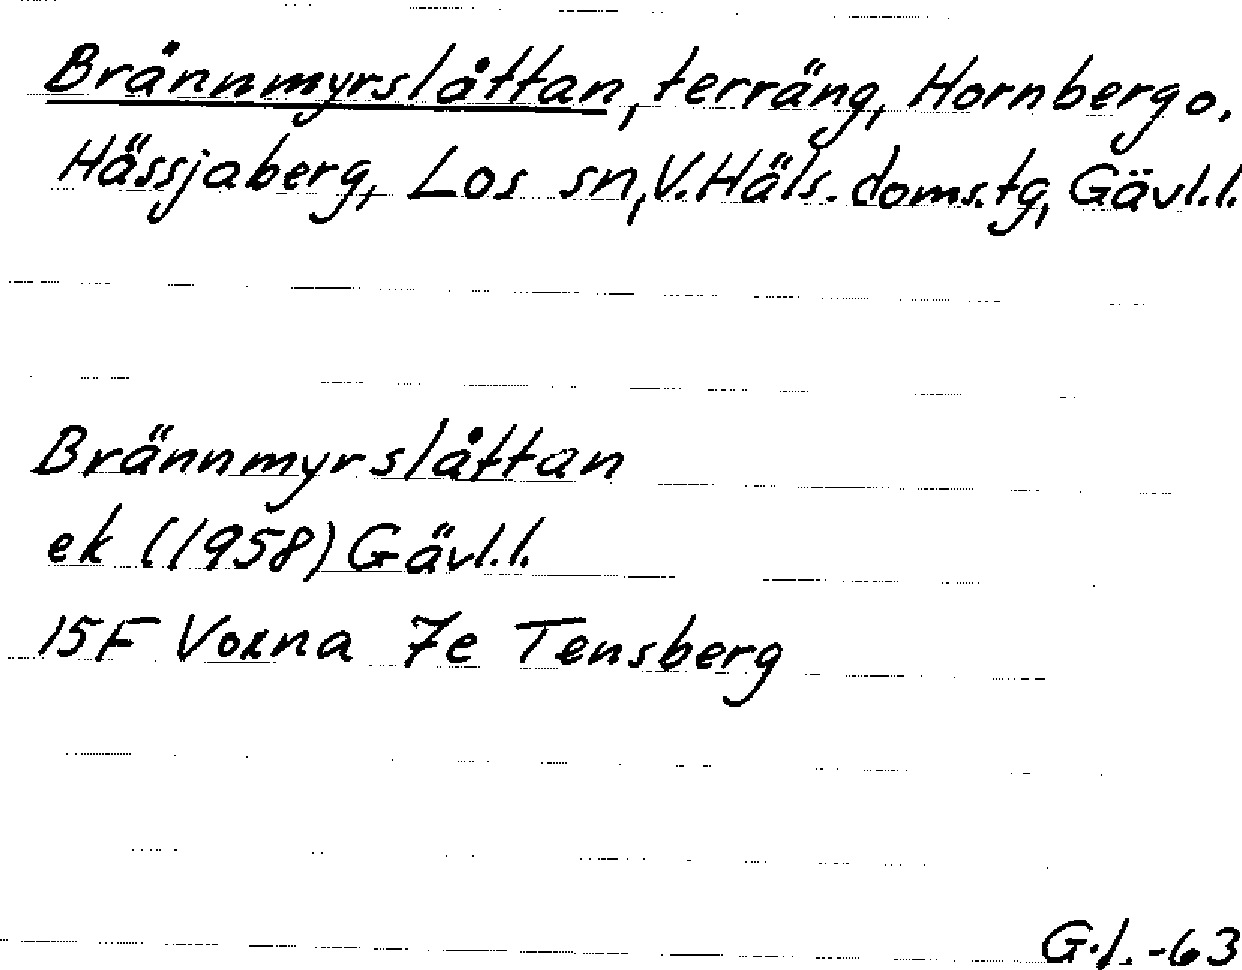 Brännmyrslåttan, terräng, Hornberg o.
Hässjaberg, Los sn, V. Häls. doms.tg, Gävl.l.
Brännmyrslåttan
ek (1958) Gävl.l.
15F Voxna 7e Tensberg
G.l. -63